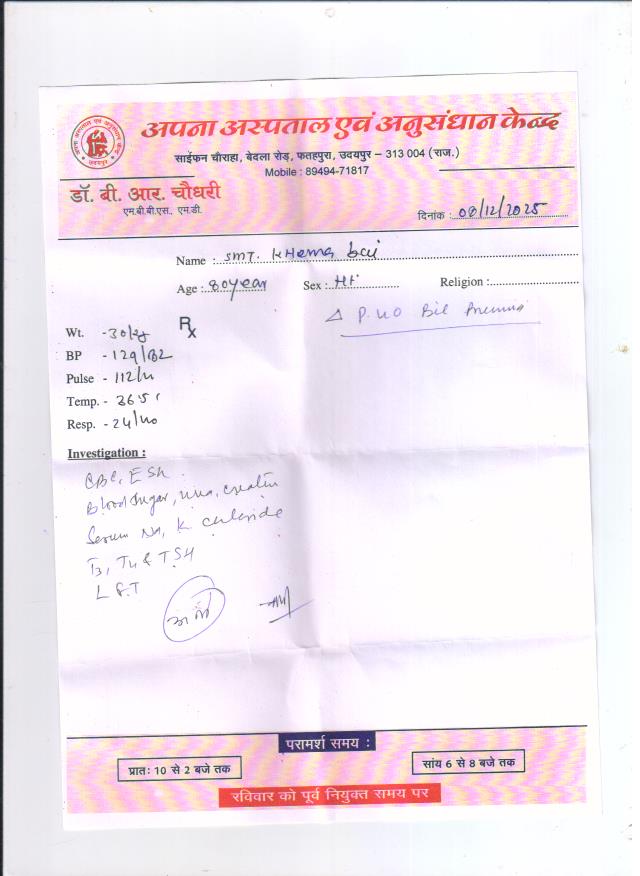 अपना अस्पताल एवं अनुसंधान केन्द्र
साईफन चौराहा, बेदला रोड़, फतहपुरा, उदयपुर – 313 004 (राज.)
Mobile : 89494-71817
डॉ. बी. आर. चौधरी
एम.बी.बी.एस., एम.डी.
दिनांक : 08/12/2025
Name : SMT. KHema bai
Age : 80 year Sex : Religion :
Rx
Δ P.UO Bil
Wt. -
BP - 129/82
Pulse - 112/
Temp. -
Resp. - 24/
Investigation :
CBC, ESR
Blood Sugar, Urea, Creatin
Serum Na, K
T3, T4 & TSH
LFT
परामर्श समय :
प्रातः 10 से 2 बजे तक
सांय 6 से 8 बजे तक
रविवार को पूर्व नियुक्त समय पर